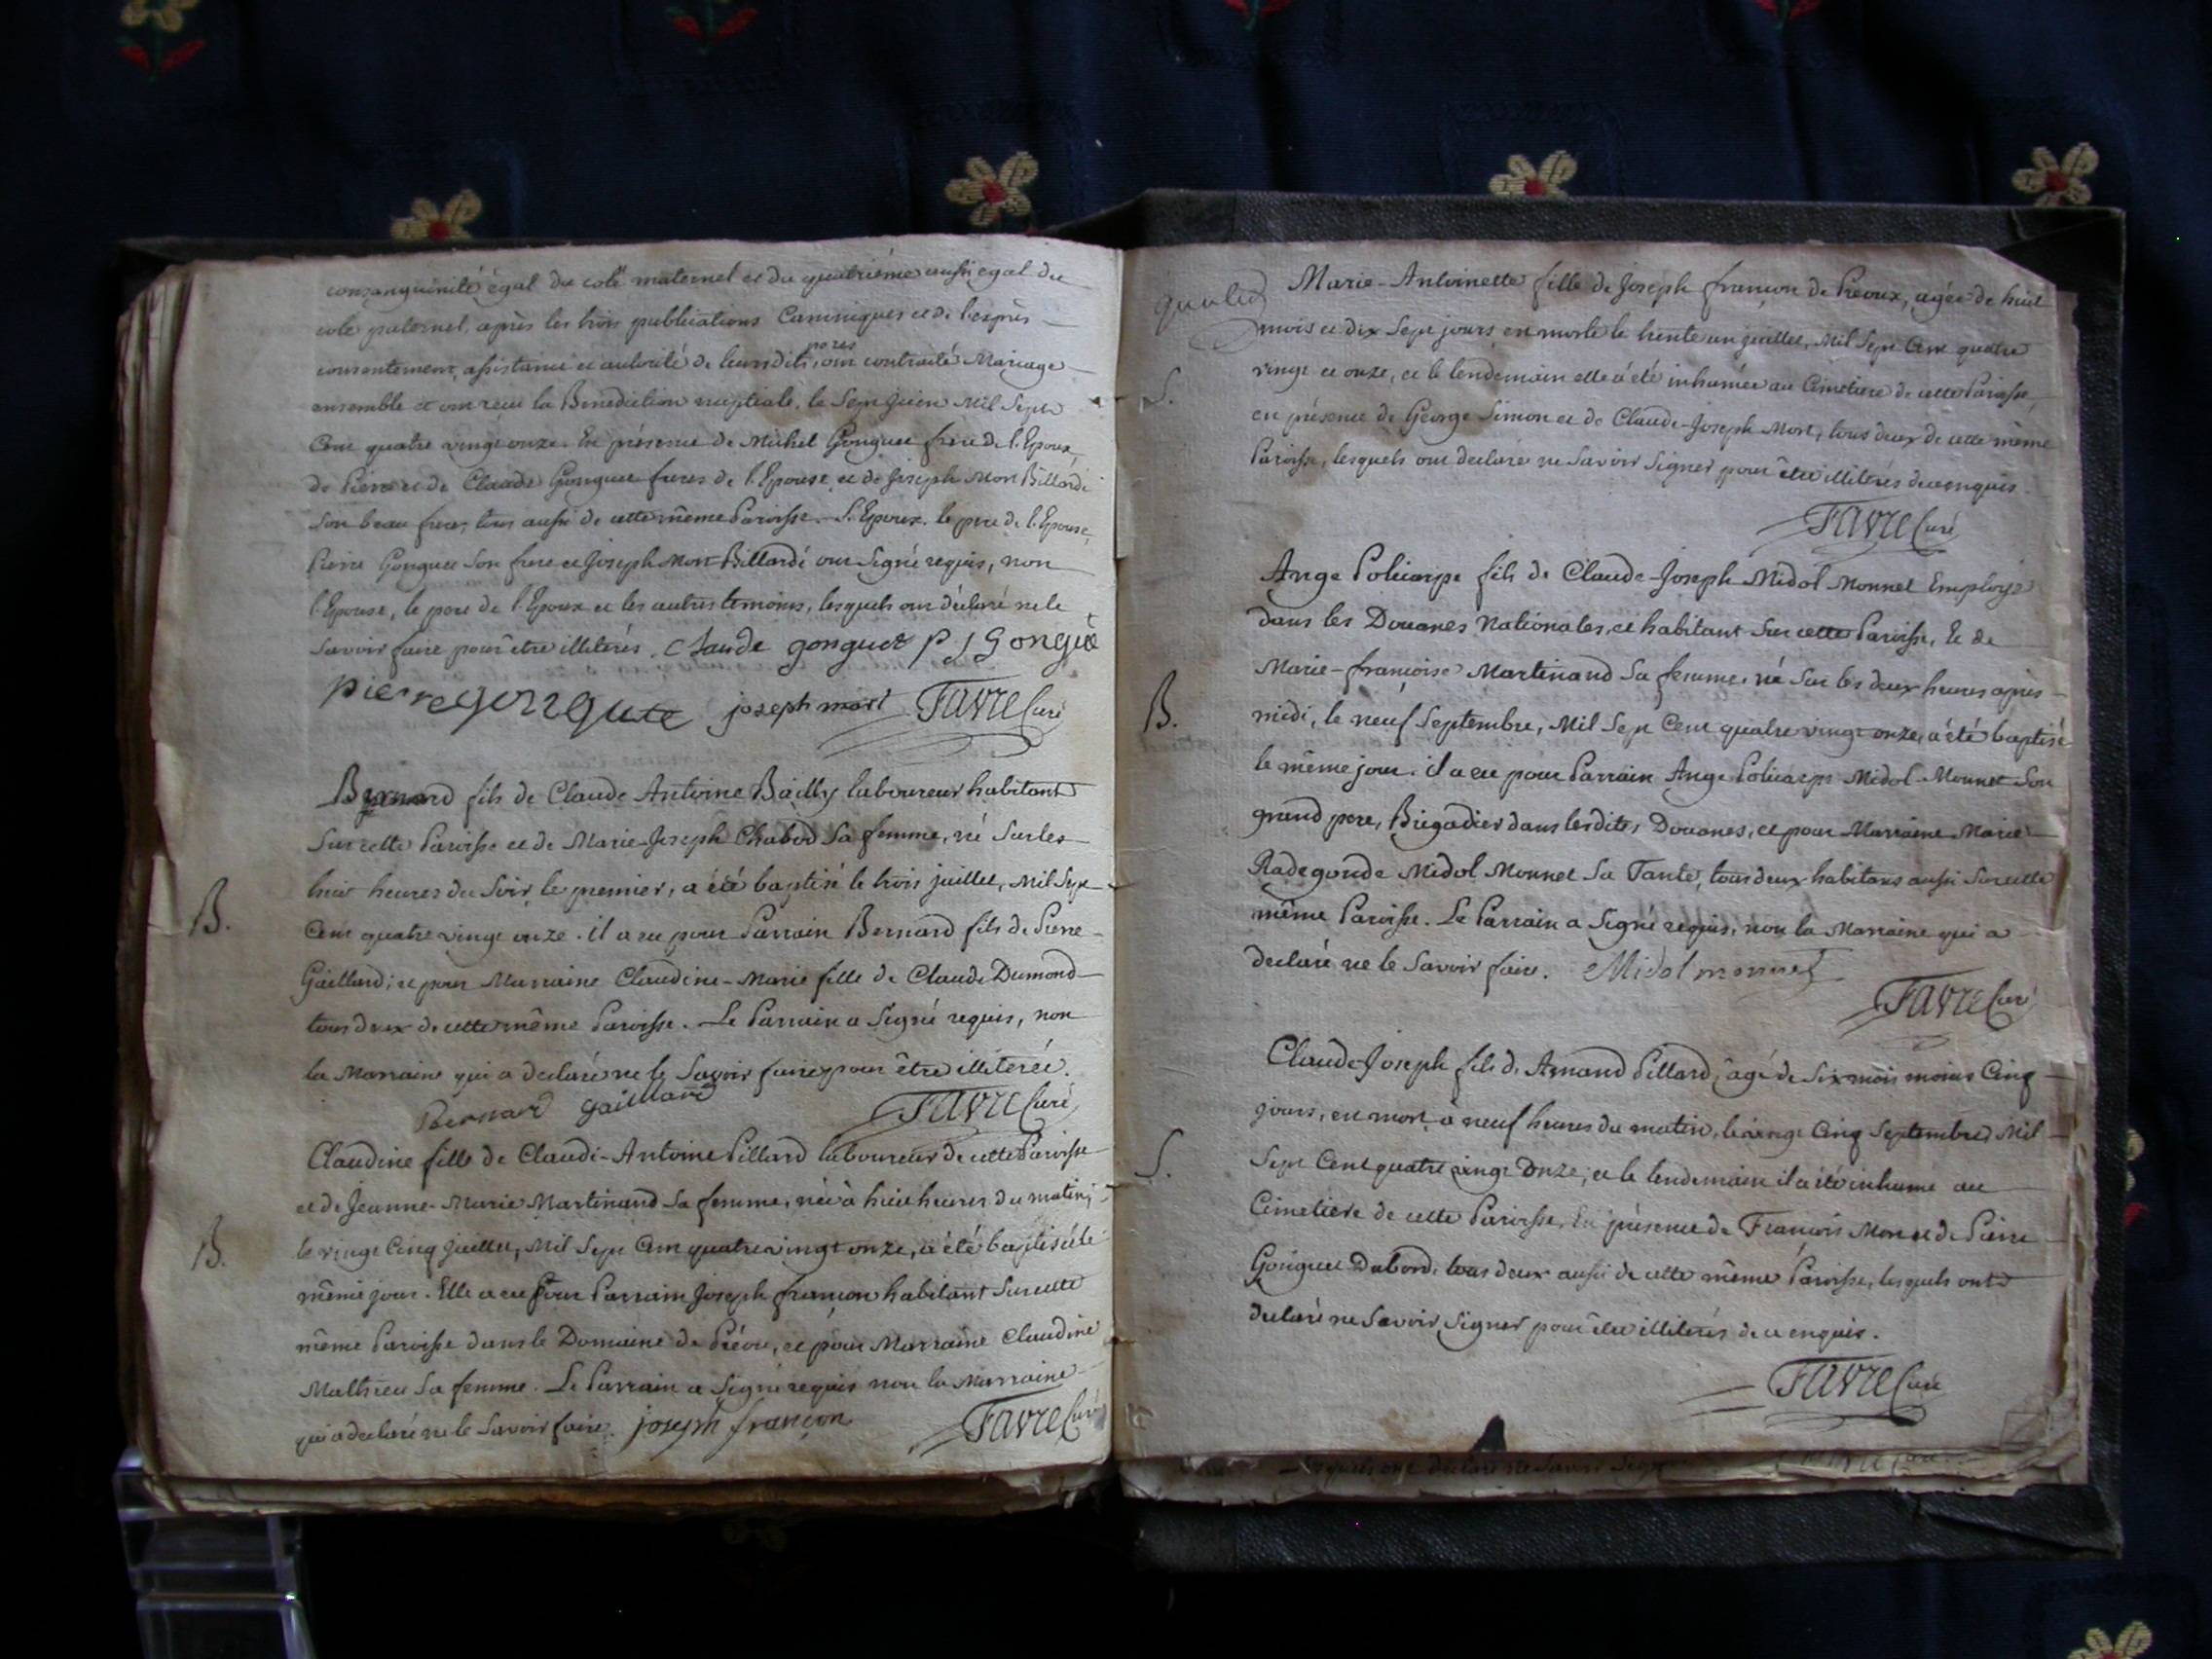 consanguinité égal du coté maternel et du quatrième aussi egal du
coté paternel, après les trois publications Canoniques et de l'exprès
consentement, assistance et autorité de leursdits peres, ont contracté Mariage
ensemble et ont reçu la Benediction nuptiale, le Sept juin Mil Sept
Cent quatre vingt onze. En présence de Michel Gonguet frere de l'Epoux,
de Pierre et de Claude Gonguet freres de l'Epouse et de Joseph Mort Billardé
Son beau frere, tous aussi de cette même Paroisse. L'Epoux, le pere de l'Epouse,
Pierre Gonguet Son frere et Joseph Mort Billardé ont Signé requis, non
l'Epouse, le pere de l'Epoux et les autres temoins, lesquels ont déclaré ne le
Savoir faire pour être illiterés. Claude gonguet P J Gonguet
pierre gonguete joseph mort Favre Curé
Bernard fils de Claude Antoine Bailly laboureur habitant
Sur cette Paroisse et de Marie-Joseph Chabod Sa femme, né Sur les
B. huit heures du Soir le premier, a été baptisé le trois juillet, Mil Sept
Cent quatre vingt onze. il a eu pour Parrain Bernard fils de Pierre
Gaillard; et pour Marraine Claudine-Marie fille de Claude Dumond
tous deux de cette même Paroisse. Le Parrain a Signé requis, non
la Marraine qui a declaré ne le Savoir faire pour être illiterée.
Bernard gaillard Favre Curé
Claudine fille de Claude-Antoine Pillard laboureur de cette Paroisse
et de Jeanne-Marie Martinand Sa femme, née à huit heures du matin,
B. le vingt Cinq juillet, Mil Sept Cent quatre vingt onze, a été baptisée le
même jour. Elle a eu pour Parrain Joseph françon habitant Sur cette
même Paroisse dans le Domaine de Prévou, et pour Marraine Claudine
Mathieu Sa femme. Le Parrain a Signé requis non la Marraine
qui a declaré ne le Savoir faire. joseph françon Favre Curé
Marie-Antoinette fille de Joseph françon de Prevoux, agée de huit
mois et dix Sept jours, est morte le trente un juillet, Mil Sept Cent quatre
S. vingt et onze, et le lendemain elle a été inhumée au Cimetiere de cette Paroisse,
en présence de George Simon et de Claude-Joseph Mort, tous deux de cette même
Paroisse, lesquels ont declaré ne Savoir Signer pour être illiterés de ce enquis.
Favre Curé
Ange Policarpe fils de Claude-Joseph Midol Monnet Employé
dans les Douanes Nationales, et habitant Sur cette Paroisse, Et de
Marie-françoise Martinand Sa femme, né Sur les deux heures après
B. midi, le neuf Septembre, Mil Sept Cent quatre vingt onze, a été baptisé
le même jour. il a eu pour Parrain Ange Policarpe Midol-Monnet Son
grand pere, Brigadier dans lesdites Douanes, et pour Marraine Marie
Radegonde Midol Monnet Sa Tante, tous deux habitans aussi Sur cette
même Paroisse. Le Parrain a Signé requis, non la Marraine qui a
declaré ne le Savoir faire. Midol monnet
Favre Curé
Claude-Joseph fils d'Armand Pillard, âgé de Six mois moins Cinq
jours, est mort à neuf heures du matin, le vingt Cinq Septembre, Mil
S. Sept Cent quatre vingt Onze; et le lendemain il a été inhumé au
Cimetiere de cette Paroisse, En présence de François Mort et de Pierre
Gonguet Dabord, tous deux aussi de cette même Paroisse, lesquels ont
declaré ne Savoir Signer pour être illiterés de ce enquis.
Favre Curé
lesquels ont declaré ne Savoir Signer